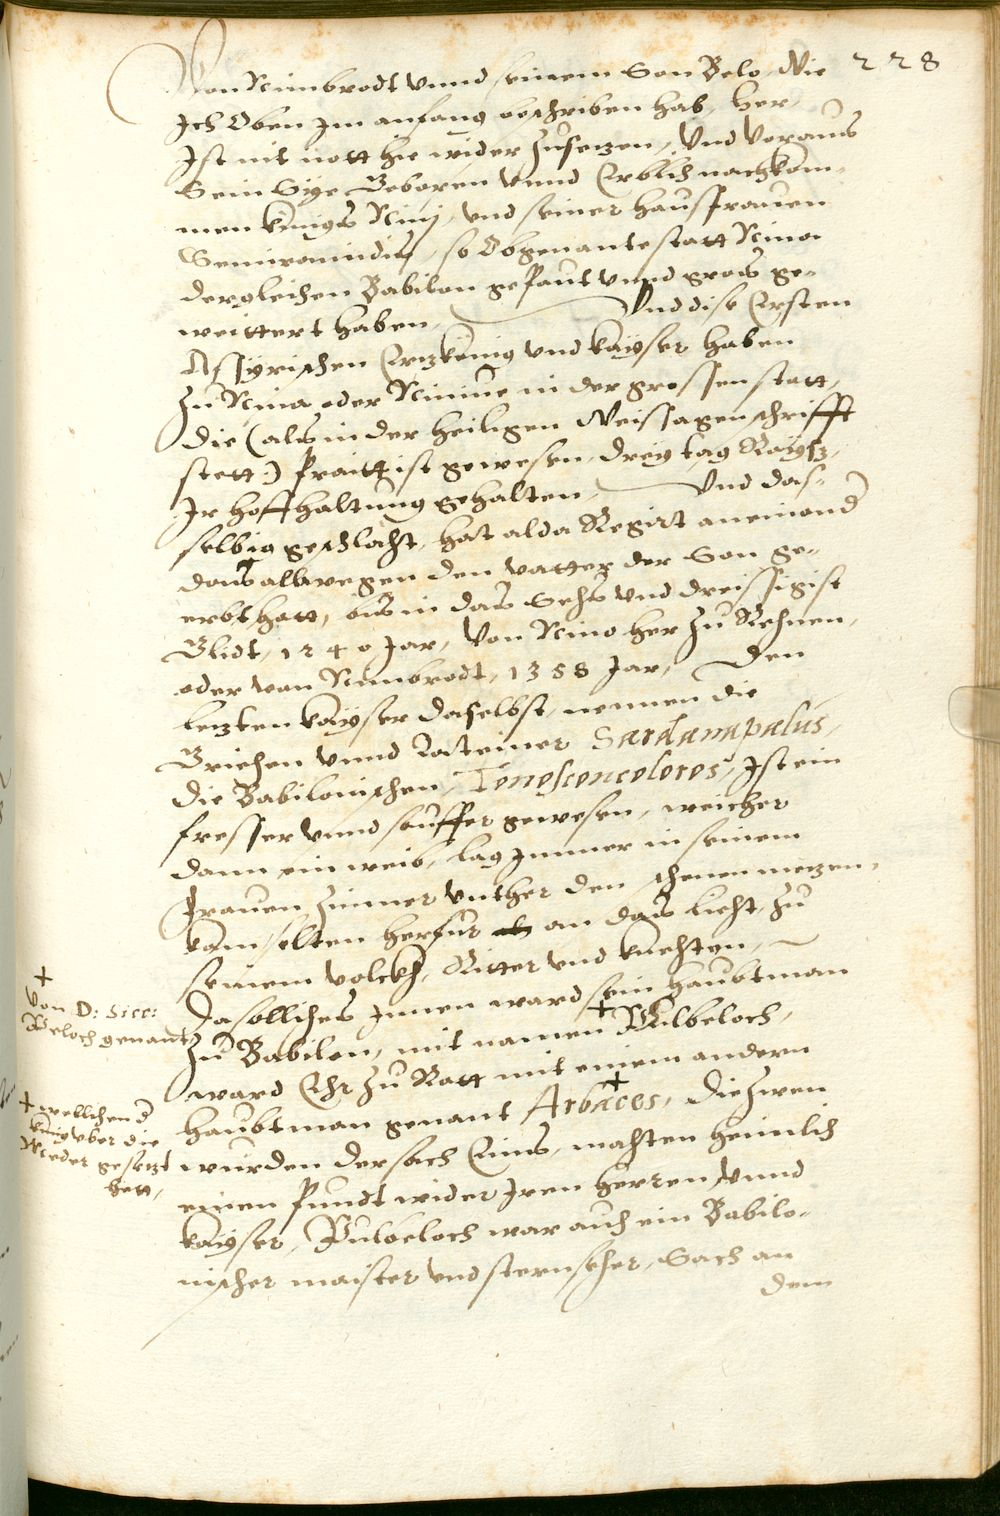 228
Von Nimbrodt vnnd seinem Son Belo, Wie
Ich Oben Im anfang beschriben hab, her,
Ist nit nott hie wider zusetzen, Vnd voraus
Sein Sye Geboren vnnd Erblich nachkom¬
men künigs Ninj, vnd seiner hausfrauen
Semiramidis, so Obgenante statt Nina
dergleichen Babilon gepaut vnnd gros ge¬
weittert haben, Vnd dise Ersten
Assyrischen Ertzkönig vnd kayser haben
Zu Nina oder Niniue in der grossen statt,
die (als in der heiligen Weissagen schrifft
stett) Praitt ist gewesen, drey tag Raysz,
Ir hoffhaltung gehalten, Vnd das¬
selbig geschlacht, hat alda Regirt aneinand
das allwegen den vatter der Son ge¬
erbt hatt, bis in das Sechs vnd dreissigist
Glidt, 1240 Jar, Von Nino her zu Rechnen,
oder von Nimbrodt, 1358 Jar, Den
letzten kayser daselbst, nennen die
Griechen vnnd Lateiner Sardanapalus,
die Babilonischen, Tonosconcoloros, Ist ein
fresser vnnd sauffer gewesen, weicher
dann ein weib, lag Immer in seinem
frauen zimmer vnther den schenen metzen,
kam selten herfur an das liecht, zu
seinem volckh, Ritter vnd knechten,
Da solliches Innen ward sein haubtman
zu Babilon, mit namen + Pulbeloch,
ward Ehr zu Ratt mit einem andern
haubtman genant + Arbaces, die zwen
wurden der sach Eins, machten heimlich
einen Pundt wider Iren herren vnnd
kayser, Pulbeloch war auch ein Babilo¬
nischer maister vnd sternseher, Sach an
dem
+
Von D: Sicc:
Beloch genant
+ wellichen d
künig vber die
Meder gesetzt
hett,